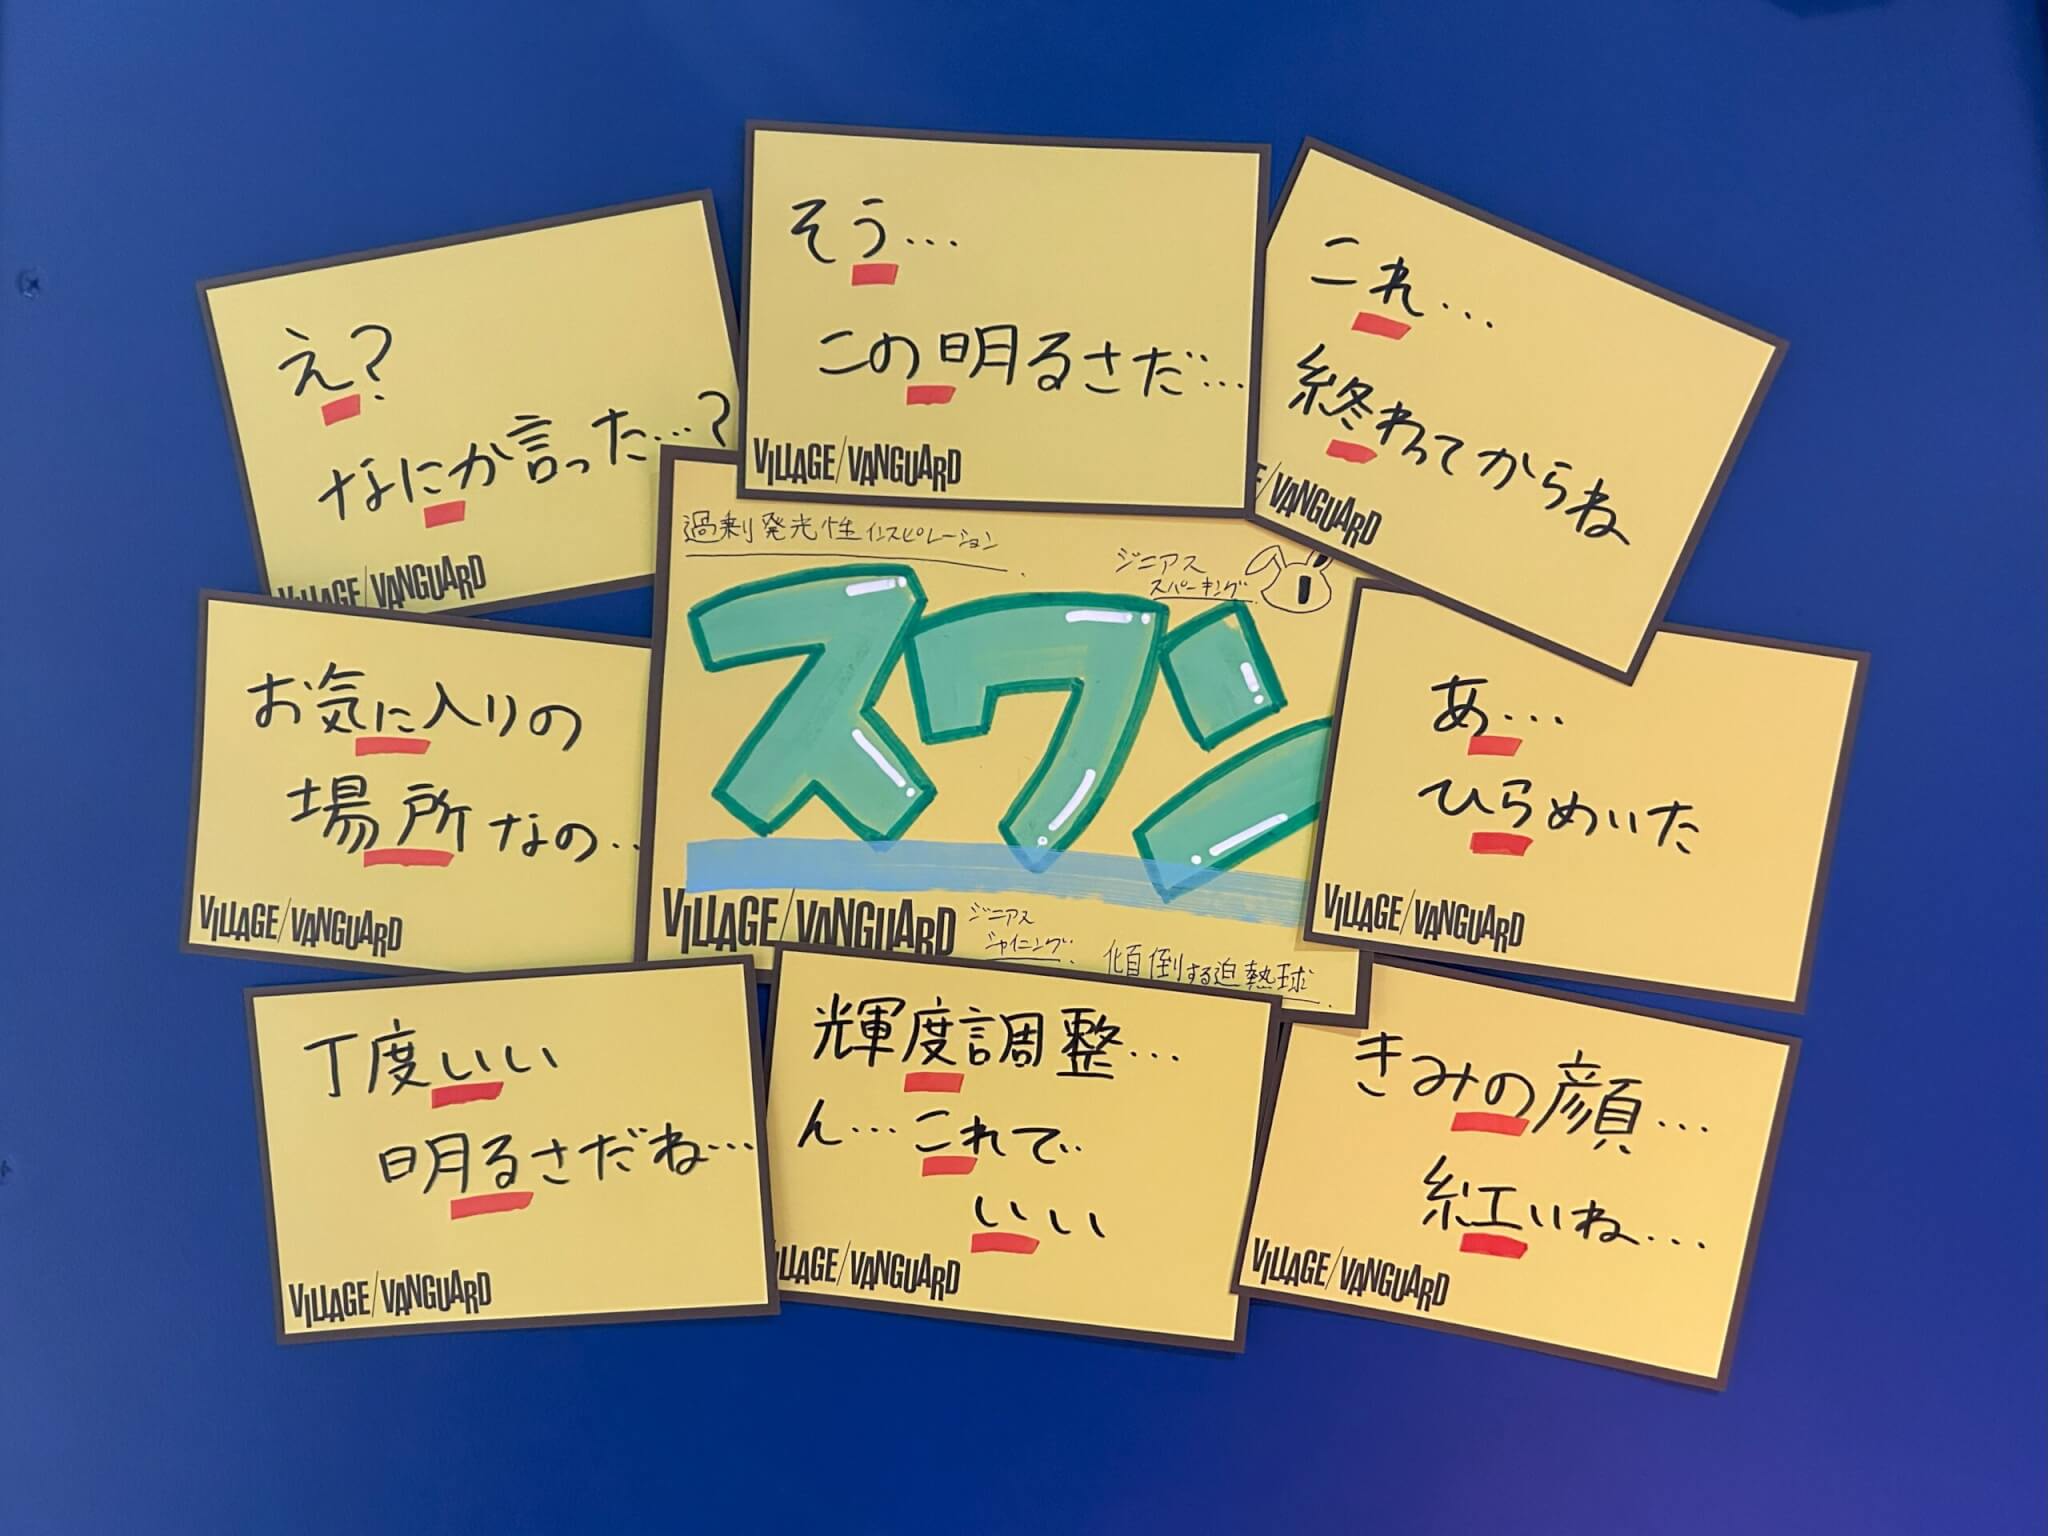 え?
なにか言った…?
VILLAGE/VANGUARD
そう…
この明るさだ…
VILLAGE/VANGUARD
これ…
終わってからね
/VANGUARD
過剰発光性インスピレーション.
ジニアス
スパーキング.
スワン
VILLAGE/VANGUARD
ジニアス
シャイニング.
傾倒する迫熱球.
お気に入りの
場所なの…
VILLAGE/VANGUARD
あ…
ひらめいた
VILLAGE/VANGUARD
丁度いい
明るさだね…
VILLAGE/VANGUARD
輝度調整…
ん…これで
いい
VILLAGE/VANGUARD
きみの顔…
紅いね…
VILLAGE/VANGUARD